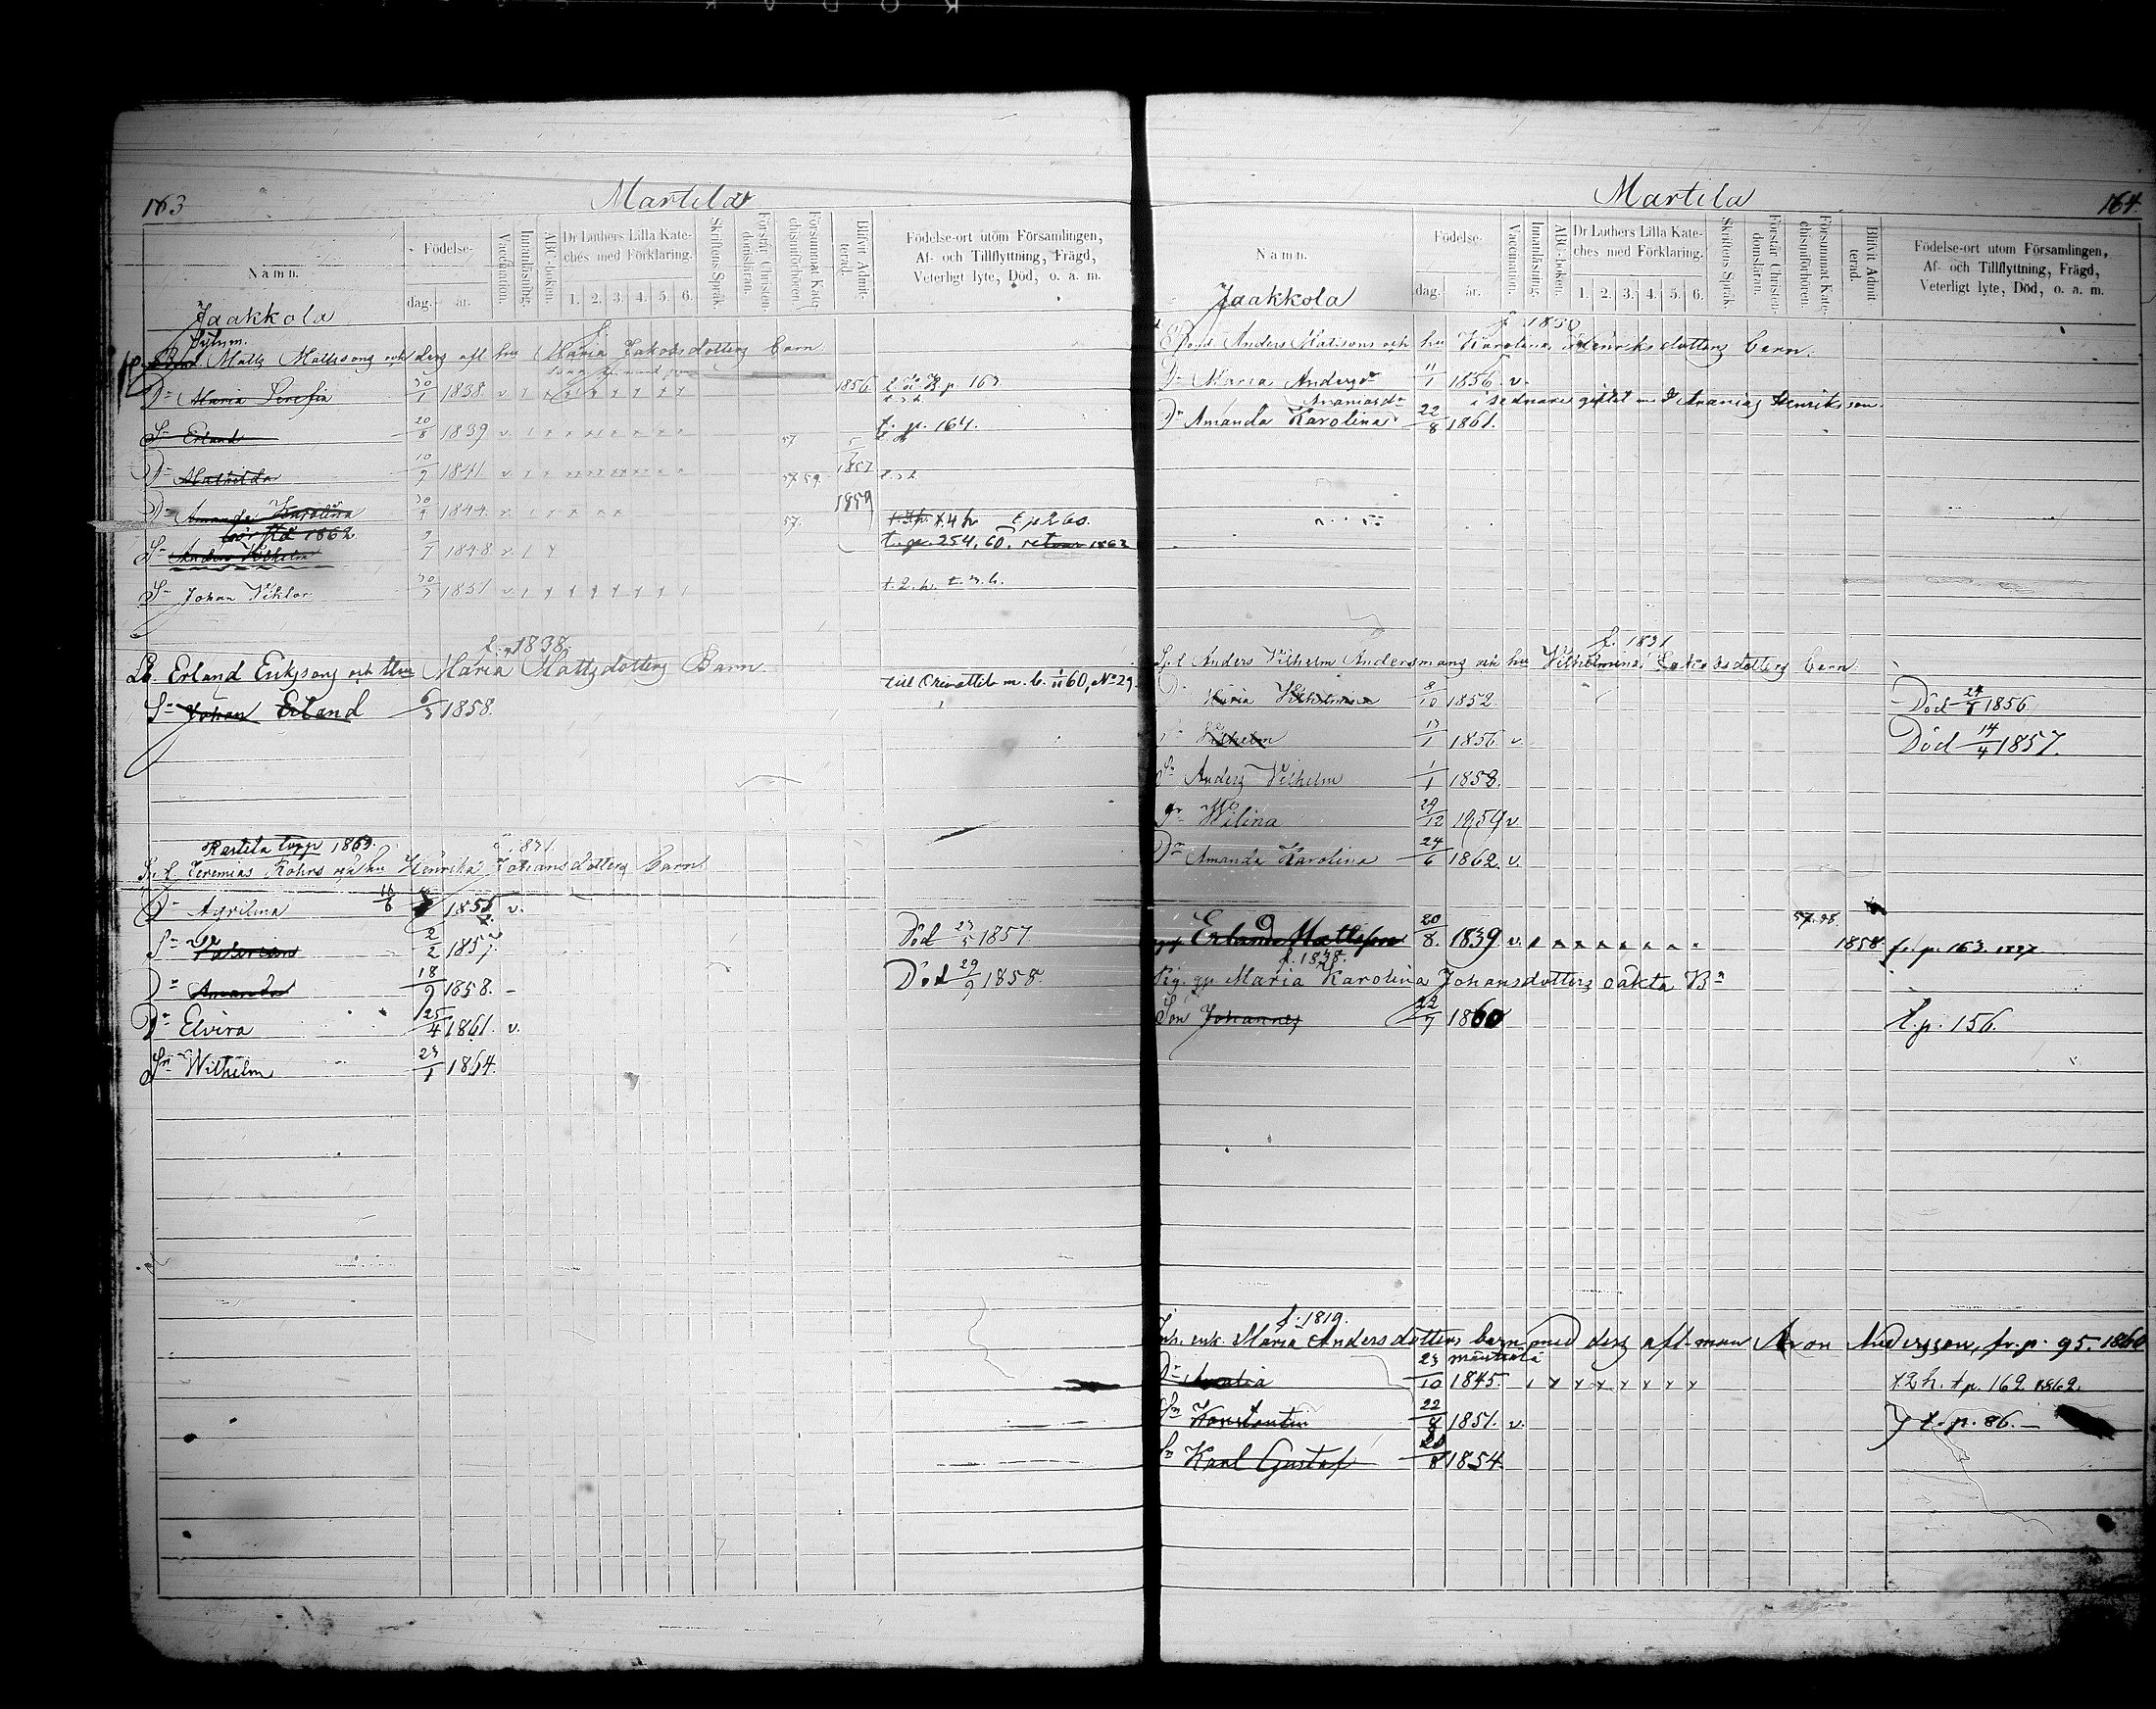 163
Martila
Namn.
Födelse-
dag.
år.
Vaccination.
Innanläsning.
ABC-boken.
Dr Luthers Lilla Kate-
ches med Förklaring.
1. 2. 3. 4. 5. 6.
Skriftens Språk.
Förstår Christen-
domsläran.
Försummat Kate-
chismiförhören.
Blifvit Admit-
terad.
Födelse-ort utom Församlingen,
Af- och Tillflyttning, Frägd,
Veterligt lyte, Död, o. a. m.
Jaakkola
Matts Mattssons och dess afl. hu Maria Jakobsdotters barn
Dr Maria Serefia 30/1 1838 v 1856
Sn Erland 20/8 1839 v 57 t. p. 164.
Dr Mathilda 10/9 1841 v 57 59 1857
Dr Amanda Karolina 30/4 1844 v 57. 1859 t. 4 h t p 260.
1862
Sn Anders Wilhelm 1848 v t. p. 254, 60. retour 1862
Sn Johan Viktor 30/3 1851 v t. 2. h. t. 3. h.
f. 1838.
Erland Erikssons och Maria Mattsdotters Barn
till Orimattila m. b. 1/11 60, No 29.
Sn Johan Erland 6/3 1858.
Rastila torp 1863.
Jeremias Rohrs och hu Henrika Johansdotters Barn
Dr Aprilina 1855 v.
Sn 2/2 1857 Död 23/5 1857
Dr Amanda 18/9 1858. – Död 29/9 1858.
Dr Elvira 25/4 1861. v.
Sn Wilhelm 23/1 1864.
164.
Martila
Namn.
Födelse-
dag.
år.
Vaccination.
Innanläsning.
ABC-boken.
Dr Luthers Lilla Kate-
ches med Förklaring.
1. 2. 3. 4. 5. 6.
Skriftens Språk.
Förstår Christen-
domsläran.
Försummat Kate-
chismiförhören.
Blifvit Admit-
terad.
Födelse-ort utom Församlingen,
Af- och Tillflyttning, Frägd,
Veterligt lyte, Död, o. a. m.
Jaakkola
f. 1830
Anders Matssons och hu Karolina Henriksdotters barn.
Dr Maria Andersdr 11/1 1856 v.
Ananiasdr i sednare giftet m. Ananias Henriksson.
Dr Amanda Karolina 22/8 1861.
f. 1831
Anders Vilhelm Andersmans och hu Vilhelmina Jakobsdotters barn
Maria Vilhelmina 8/10 1852. Död 1856
Vilhelm 13/1 1856 v. Död 14/4 1857.
Sn Anders Vilhelm 1/1 1858.
Dr Wilina 29/12 1859 v
Dr Amanda Karolina 24/6 1862. v.
Erland Mattsson 20/8. 1839 v. 57. 58. 1858 fr. p. 163.
f. 1838.
Pig. Maria Karolina Johansdotters oäkta Bn
Son Johannes 22/7 1860 t. p. 156
f. 1819.
Inh. enk. Maria Andersdotters barn med dess afl. man Aron Andersson, fr. p. 95. 1860
Mäntsälä
Dr Amalia 23/10 1845. t. 2 h. t p. 162. 1862.
Sn Konstantin 22/8 1851. v. t. p. 86. –
Sn Karl Gustaf 20/8 1854.